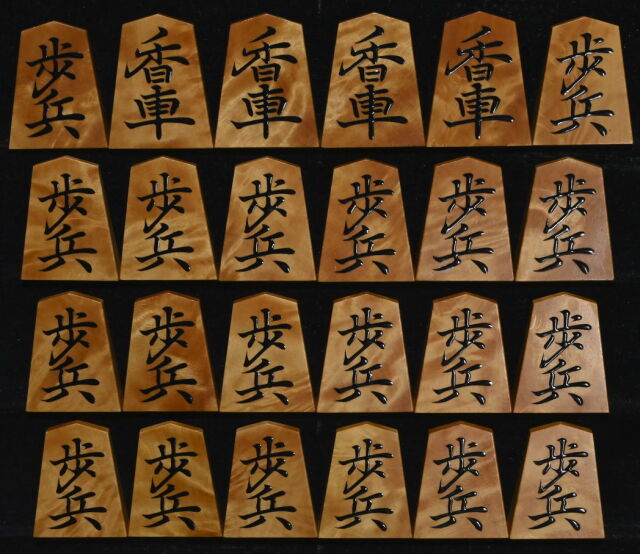 歩兵 香車 香車 香車 香車 歩兵
歩兵 歩兵 歩兵 歩兵 歩兵 歩兵
歩兵 歩兵 歩兵 歩兵 歩兵 歩兵
歩兵 歩兵 歩兵 歩兵 歩兵 歩兵